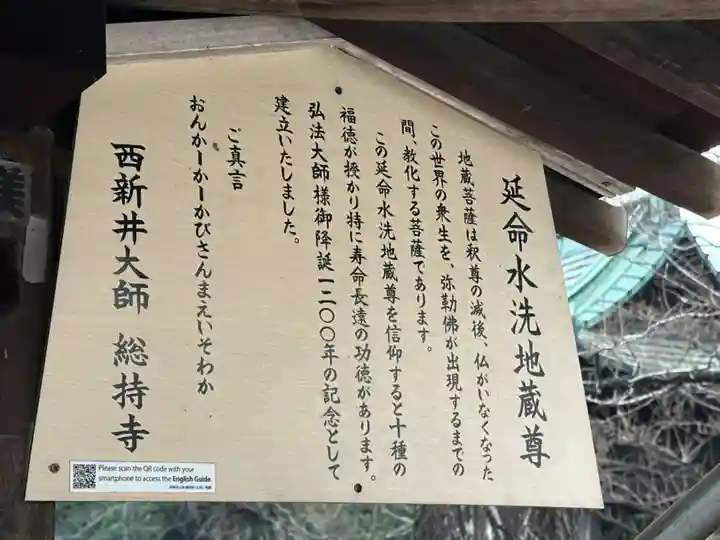 延命水洗地蔵尊
地蔵菩薩は釈尊の滅後、仏がいなくなった
この世界の衆生を、弥勒佛が出現するまでの
間、教化する菩薩であります。
この延命水洗地蔵尊を信仰すると十種の
福徳が授かり特に寿命長遠の功徳があります。
弘法大師様御降誕一二〇〇年の記念として
建立いたしました。
ご真言
おんかーかーかびさんまえいそわか
西新井大師 総持寺
Please scan the QR code with your
smartphone to access the English Guide.